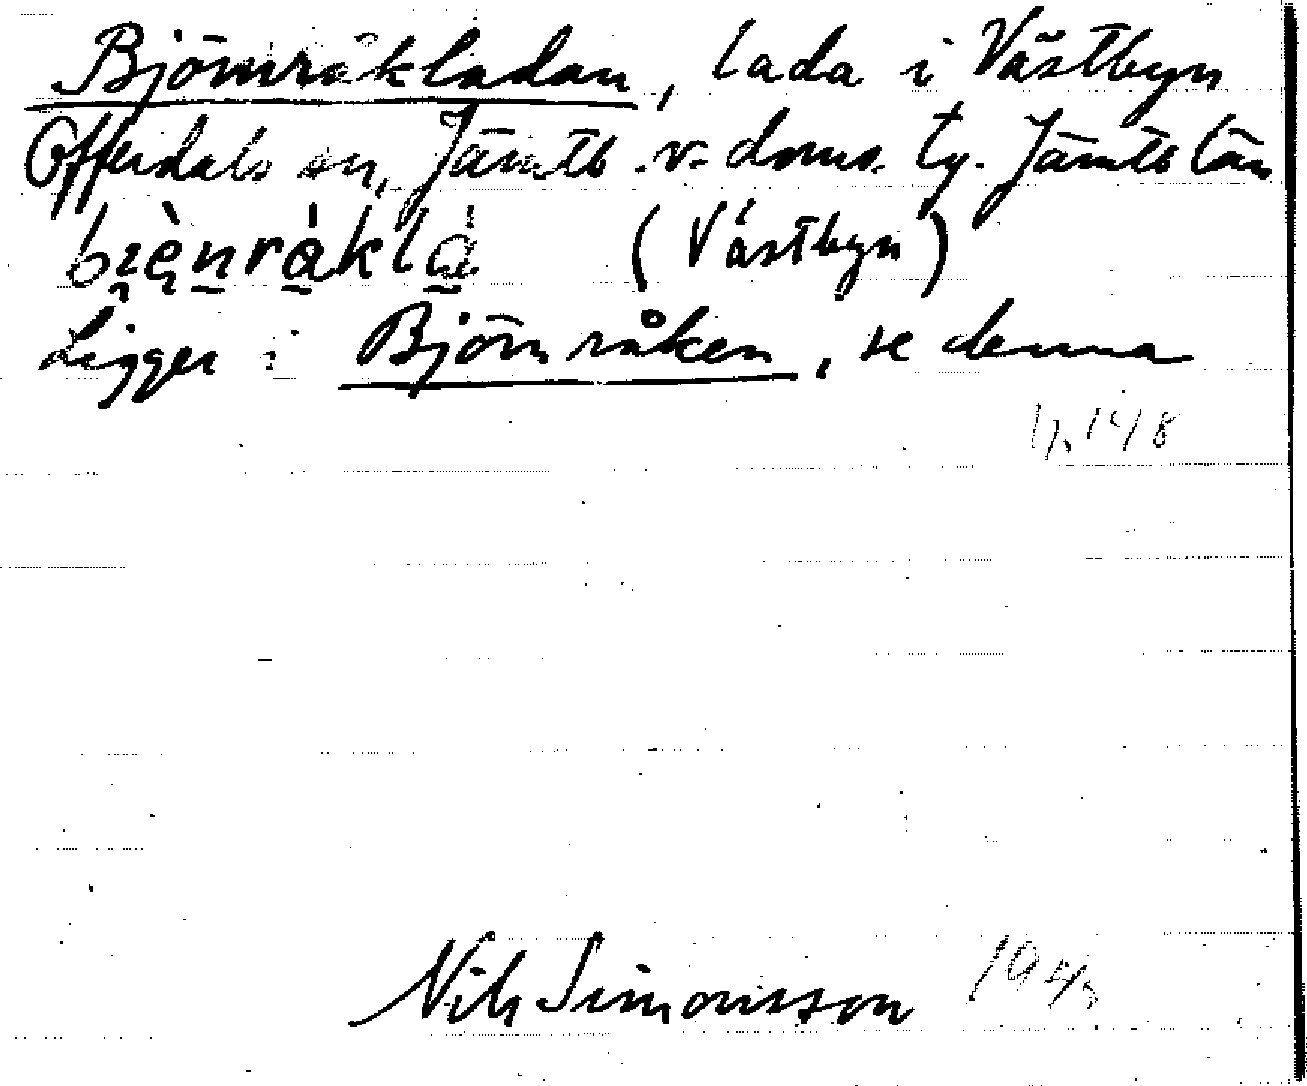 Björnråkladan, lada i Västbyn
Offerdals sn, Jämtb v. doms. ty. Jämtb län
(Västbyn)
Ligger i Björnråken, se denna
148
Nils Simonsson